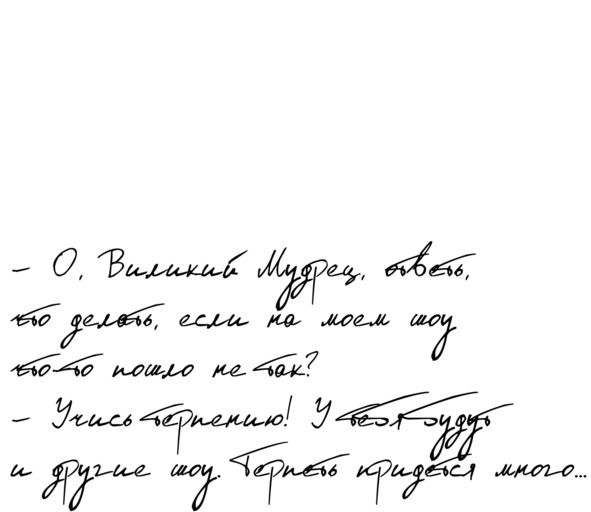 – О, Виликий Мудрец, ответь,
что делать, если на моем шоу
что-то пошло не так?
– Учись терпению! У тебя будут
и другие шоу. Терпеть придется много...